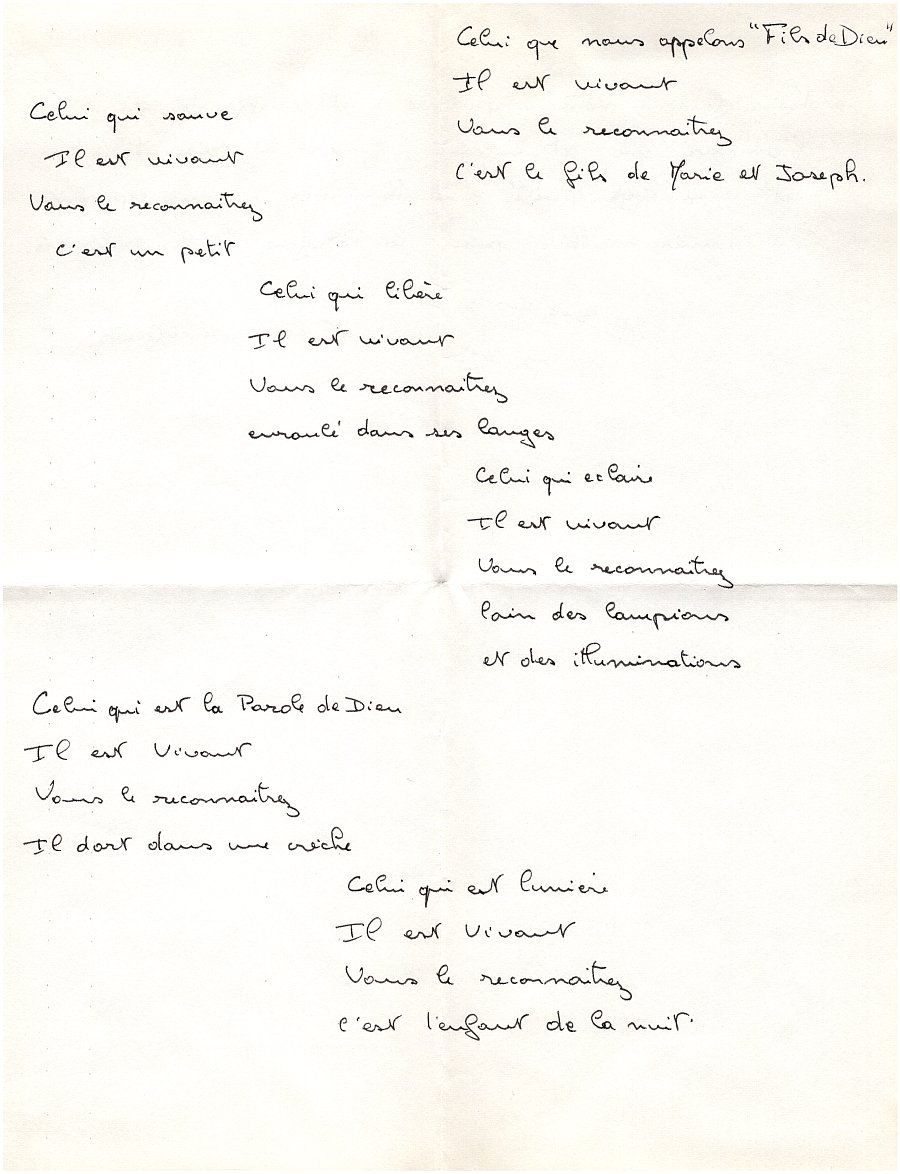 Celui que nous appelons "Fils de Dieu"
Il est vivant
Vous le reconnaitrez
C'est le fils de Marie et Joseph.
Celui qui sauve
Il est vivant
Vous le reconnaitrez
C'est un petit
Celui qui libère
Il est vivant
Vous le reconnaitrez
enroulé dans ses langes
Celui qui eclaire
Il est vivant
Vous le reconnaîtrez
loin des lampions
et des illuminations
Celui qui est la Parole de Dieu
Il est Vivant
Vous le reconnaitrez
Il dort dans une crèche
Celui qui est lumière
Il est Vivant
Vous le reconnaitrez
C'est l'enfant de la nuit.